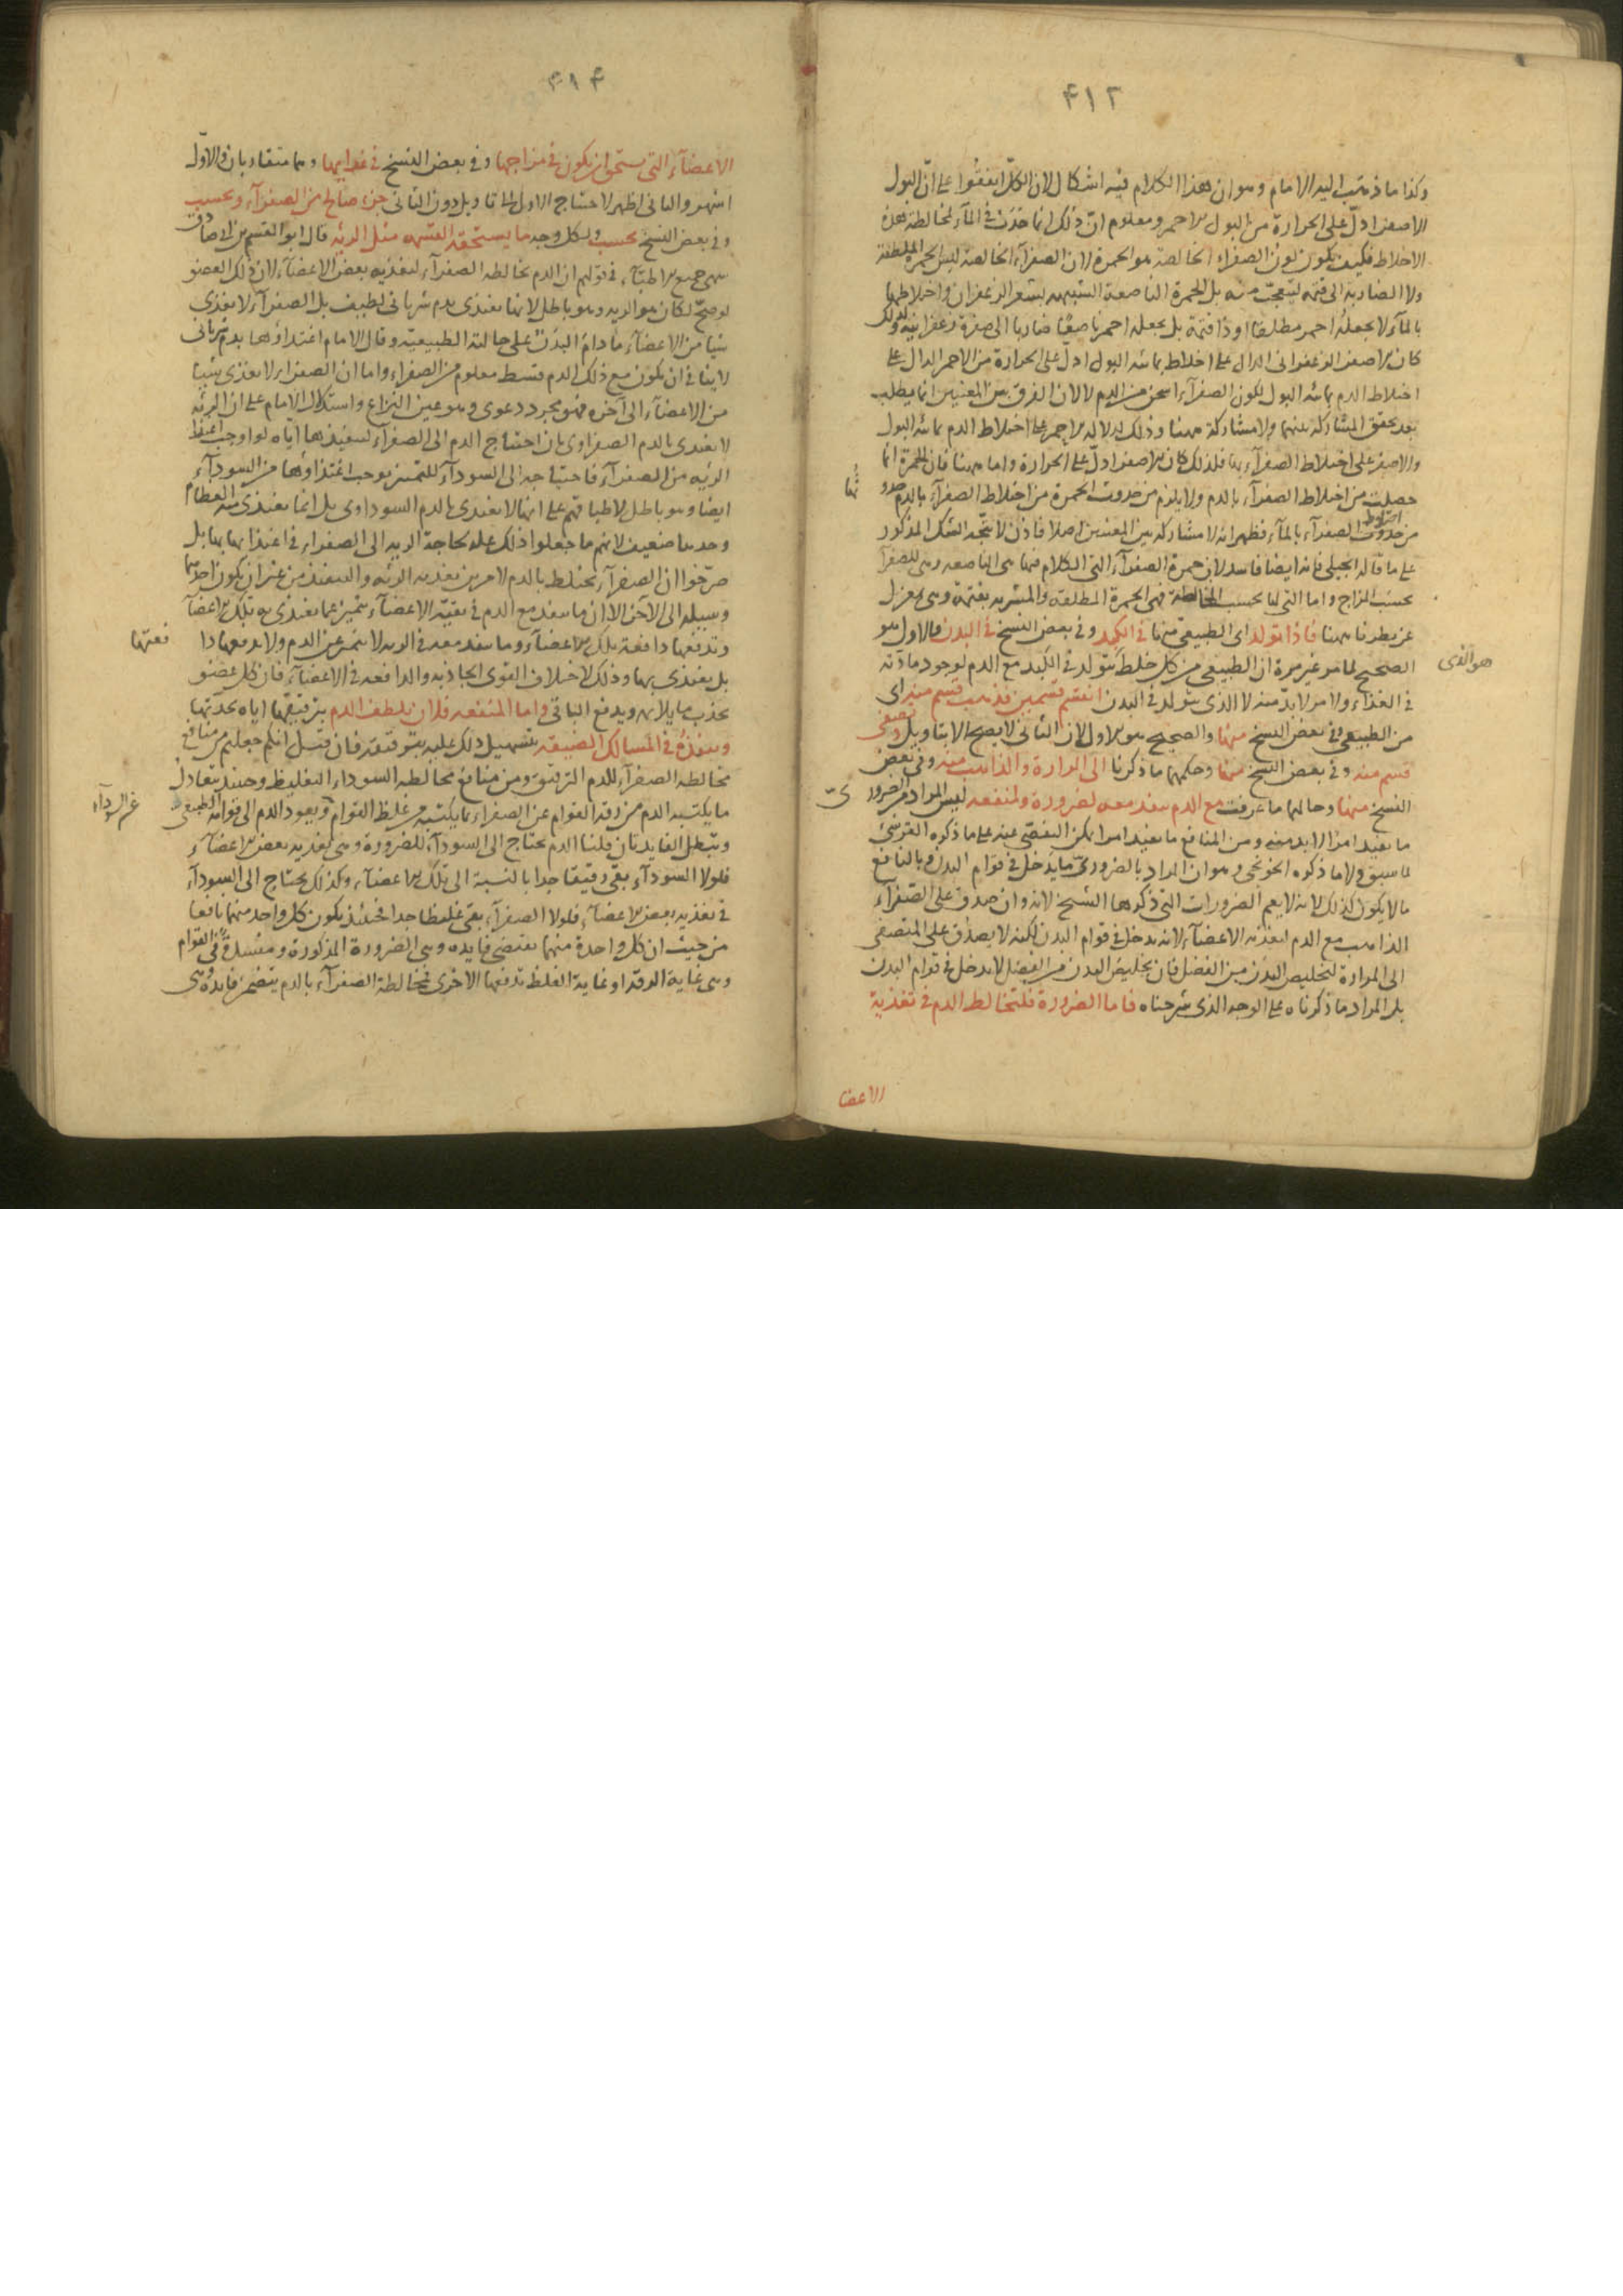 ٤١٢
وكذا ما ذهب اليه الامام وهو ان هذا الكلام فيه اشكال لان الكل اتفقوا على ان البول
الاصفر ادل على الحرارة من البول الاحمر ومعلوم ان ذلك انما حدث فى المآء لمخالطة هذه
الاخلاط فكيف يكون لون الصفراء الخالصة هو الحمرة لان الصفرآء الخالصة ليس الحمرة المطلقة
ولا الضاربة الى قتمة ليتعجب منه بل الحمرة الناصعة الشبيهة بشعر الزعفران واختلاطها
بالمآء لا يجعله احمر مطلقا او ذا قتمة بل يجعله احمر ناصعا ضاربا الى صفرة زعفرانية ولذلك
كان الاصفر الزعفرانى الدال على اختلاط بمائية البول ادل على الحرارة من الاحمر الدال على
اختلاط الدم بمائية البول لكون الصفرآء اسخن من الدم لا لان الفرق بين المعنيين انما يطلب
بعد تحقق المشاركة بينهما ولا مشاركة ههنا وذلك لدلالة الاحمر على اختلاط الدم بمائية البول
والاصفر على اختلاط الصفرآء بها فلذلك كان الاصفر ادل على الحرارة واما ههنا فان الحمرة انما
حصلت من اختلاط الصفرآء بالدم ولا يلزم من حدوث الحمرة من اختلاط الصفرآء بالدم حدو
ثها
من اختلاط الصفرآء بالمآء فظهر انه لا مشاركة بين المعنيين اصلا فاذن لا يتجه الشك المذكور
على ما قاله الجيلى فانه ايضا فاسد لان حمرة الصفرآء التى الكلام فيها هى الناصعة وهى للصفرآ
بحسب المزاج واما التى لها بحسب المخالطة فهى الحمرة المطلقة والمشربة بقتمة وهى بمعزل
عن نظرنا ههنا فاذا تولد اى الطبيعى منها فى الكبد وفى بعض النسخ فى البدن فالاول هو
هو الذى
الصحيح لما مر غير مرة ان الطبيعى من كل خلط يتولد فى الكبد مع الدم لوجود مادته
فى الغذاء ولا مر لابد منه لا الذى يتولد فى البدن انقسم قسمين فذهب قسم منه اى
من الطبيعى وفى بعض النسخ منها والصحيح هو الاول لان الثانى لا يصح الا بتاويل وتصفى
قسم منه وفى بعض النسخ منها وحكمها ما ذكرنا الى المرارة والذاهب منه وفى بعض
النسخ منها وحالها ما عرفت مع الدم ينفذ معه لضرورة ولمنفعة ليس المراد من الضرور
ىّ
ما يفيد امرا لا بد منه ومن المنافع ما يفيد امرا يمكن التفصى عنه على ما ذكره القرشى
لما سبق ولا ما ذكره الخونجى وهو ان المراد بالضرورى ما يدخل فى قوام البدن وبالنافع
ما لا يكون كذلك لانه لا يعم الضرورات التى ذكرها الشيخ لانه وان صدق على الصفراء
الذاهب مع الدم لتغذية الاعضآء لانه يدخل فى قوام البدن لكنه لا يصدق على المتصفى
الى المرارة لتخليص البدن من الفضل فان تخليص البدن من الفضل لا يدخل فى قوام البدن
بل المراد ما ذكرناه على الوجه الذى شرحناه فاما الضرورة فلتخالط الدم فى تغذية
الاعضا
٤١٣
الاعضآء التى يستحق ان يكون فى مزاجها وفى بعض النسخ فى غذايها وهما متقاربان والاول
اشهر والثانى اظهر لاحتياج الاول الى التاويل دون الثانى جزء صالح من الصفرآء وبحسب
وفى بعض النسخ بحسب ولكل وجه ما يستحقه القسمة مثل الرية قال ابو القسم بن ابى صادق
سهى جميع الاطبآء فى قولهم ان الدم تخالطه الصفرآء لتغذية بعض الاعضآء لان ذلك العضو
لو صح لكان هو الرية وهو باطل لانها تغتذى بدم شريانى لطيف بل الصفرآء لا يغذى
شيا من الاعضآء ما دام البدن على حالته الطبيعية وقال الامام اغتذاؤها بدم شريانى
لا ينافى ان يكون مع ذلك الدم قسط معلوم من الصفراء واما ان الصفراء لا يغذى شيئا
من الاعضآء الى آخره فهو مجرد دعوى وهو عين النزاع واستدلال الامام على ان الرية
لا يغتذى بالدم الصفراوى بان احتياج الدم الى الصفرآء لتنفيذها اياه لو اوجب اغتذا
الرية من الصفرآء فاحتياجه الى السودآء للتمتين يوجب اغتذاؤها من السودآء
ايضا وهو باطل لاطباقهم على انها لا تغتذى بالدم السوداوى بل انما يغتذى منه العظام
وحدها ضعيف لانهم ما جعلوا ذلك علة لحاجة الرية الى الصفراء فى اغتذائها بها بل
صرحوا ان الصفرآء تختلط بالدم لامرين تغذية الرية والتنفيذ من غير ان يكون احدهما
وسيلة الى الآخر الا ان ما ينفذ مع الدم فى بقية الاعضآء يتميز عما يغتذى به تلك الاعضآ
وتدفعها دافعة تلك الاعضآء وما ينفذ معه فى الرية لا يتميز عن الدم ولا يدفعها دا
فعتها
بل يغتذى بها وذلك لاختلاف القوى الجاذبة والدافعة فى الاعضآء فان كل عضو
يجذب ما يلايمه ويدفع الباقى واما المنفعة فلان تلطف الدم بترقيقها اياه بحدتها
وينفذه فى المسالك الضيقة بتسهيل ذلك عليه بترقيقه فان قيل انكم جعلتم من منافع
مخالطة الصفرآء للدم الترقيق ومن منافع مخالطة السوداء التغليظ وحينئذ يعادل
ما يكتسبه الدم من رقة القوام عن الصفراء بما يكتسبه من غلظ القوام ويعود الدم الى قوامه الطبيعى
عن السودآء
وتبطل الفايدتان قلنا الدم يحتاج الى السودآء للضرورة وهى تغذية بعض الاعضآء
فلولا السودآء بقى رقيقا جدا بالنسبة الى تلك الاعضآء وكذلك يحتاج الى السودآء
فى تغذية بعض الاعضآء فلولا الصفرآء بقى غليظا جدا فحينئذ يكون كل واحد منهما نافعا
من حيث ان كل واحدة منهما تقتضى فايدة وهى الضرورة المذكورة ومفسدة فى القوام
وهى غاية الرقة او غاية الغلظ تدفعها الاخرى فمخالطة الصفرآء بالدم يتضمن فايدة هى